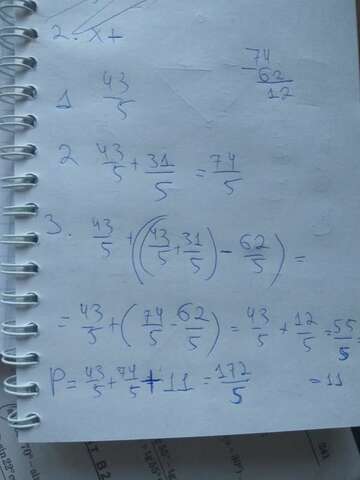 2. x+
74
- 62
12
1 43/5
2 43/5 + 31/5 = 74/5
3. 43/5 + ((43/5 + 31/5) - 62/5) =
= 43/5 + (74/5 - 62/5) = 43/5 + 12/5 = 55/5 =
= 11
P = 43/5 + 74/5 + 11 = 172/5